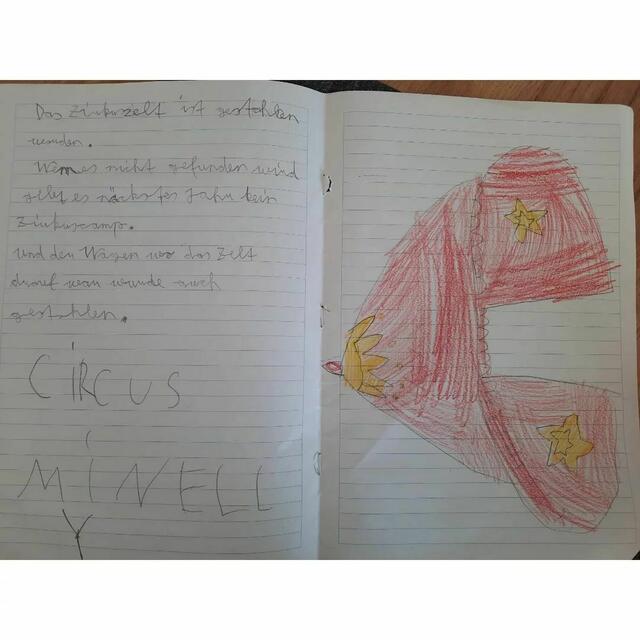 Das Zirkuszelt ist gestohlen
worden.
Wenn es nicht gefunden wird
gibt es nächstes Jahr kein
Zirkuscamp.
und der Wagen wo das Zelt
darauf war wurde auch
gestohlen.
CIRCUS
MINELL
Y